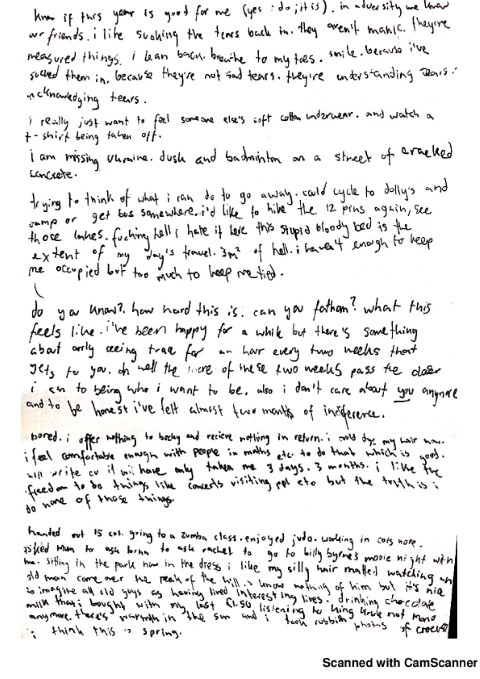 know if this year is good for me (yes : do ; it is). in adversity we know
ur friends. i like sucking the tears back in. they aren't manic. they're
measured things. i lean back. breathe to my toes. smile. because i've
sucked them in. because they're not sad tears. they're understanding tears.
acknowledging tears.
i really just want to feel someone else's soft cotton underwear. and watch a
t-shirt being taken off.
i am missing ukraine. dusk and badminton on a street of cracked
concrete.
trying to think of what i can do to go away. could cycle to dolly's and
camp or get bus somewhere. i'd like to hike the 12 pins again, see
those lakes. fucking hell i hate it here this stupid bloody bed is the
extent of my day's travel. 3m² of hell. i haven't enough to keep
me occupied but too much to keep me tied.
do you know? how hard this is. can you fathom? what this
feels like. i've been happy for a while but there's something
about only seeing trae for an hour every two weeks that
gets to you. oh well the more of these two weeks pass the closer
i am to being who i want to be. also i don't care about you anymore
and to be honest i've felt almost two months of indifference.
bored. i offer nothing to becky and recieve nothing in return. i could dye my hair now.
i feel comfortable enough with people in maths etc. to do that which is good.
will write cv it will have only taken me 3 days. 3 months. i like the
freedom to do things like concerts visiting ppl etc but the truth is i
do none of those things.
handed out 15 cvs. going to a zumba class. enjoyed judo. working in cois nore.
asked mum to ask lorna to ask rachel to go to billy byrne's movie night with
me. sitting in the park now in the dress i like my silly hair matted watching an
old man come over the peak of the hill. i know nothing of him but it's nice
to imagine all old guys as having lived interesting lives. drinking chocolate
milk that i bought with my last €1.50 listening to king krule not mono
anymore. there's warmth in the sun and i took rubbish photos of crocuses
i think this is spring.
Scanned with CamScanner